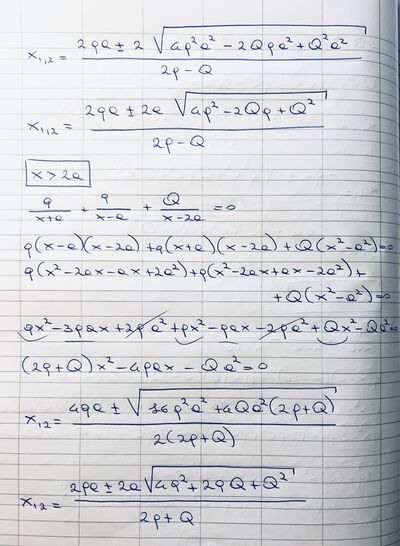 x₁,₂ = (2qa ± 2 √(4q²a² - 2Qqa² + Q²a²)) / (2q - Q)
x₁,₂ = (2qa ± 2a √(4q² - 2Qq + Q²)) / (2q - Q)
x > 2a
q/(x+a) + q/(x-a) + Q/(x-2a) = 0
q(x-a)(x-2a) + q(x+a)(x-2a) + Q(x²-a²) = 0
q(x²-2ax-ax+2a²) + q(x²-2ax+ax-2a²) +
+ Q(x²-a²) = 0
qx² - 3qax + 2qa² + qx² - qax - 2qa² + Qx² - Qa² = 0
(2q+Q)x² - 4qax - Qa² = 0
x₁,₂ = (4qa ± √(16q²a² + 4Qa²(2q+Q))) / (2(2q+Q))
x₁,₂ = (2qa ± 2a √(4q² + 2qQ + Q²)) / (2q + Q)